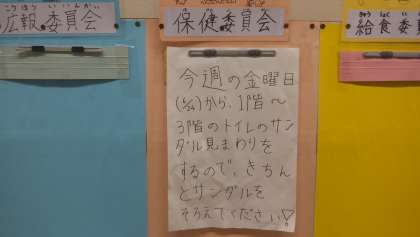 こうほう いいんかい
広報委員会
保健委員会
きゅうしょく いいん
給食委員
今週の金曜日
(5/24)から、1階〜
3階のトイレのサン
ダル見まわりを
するので、きちん
とサンダルを
そろえてください!